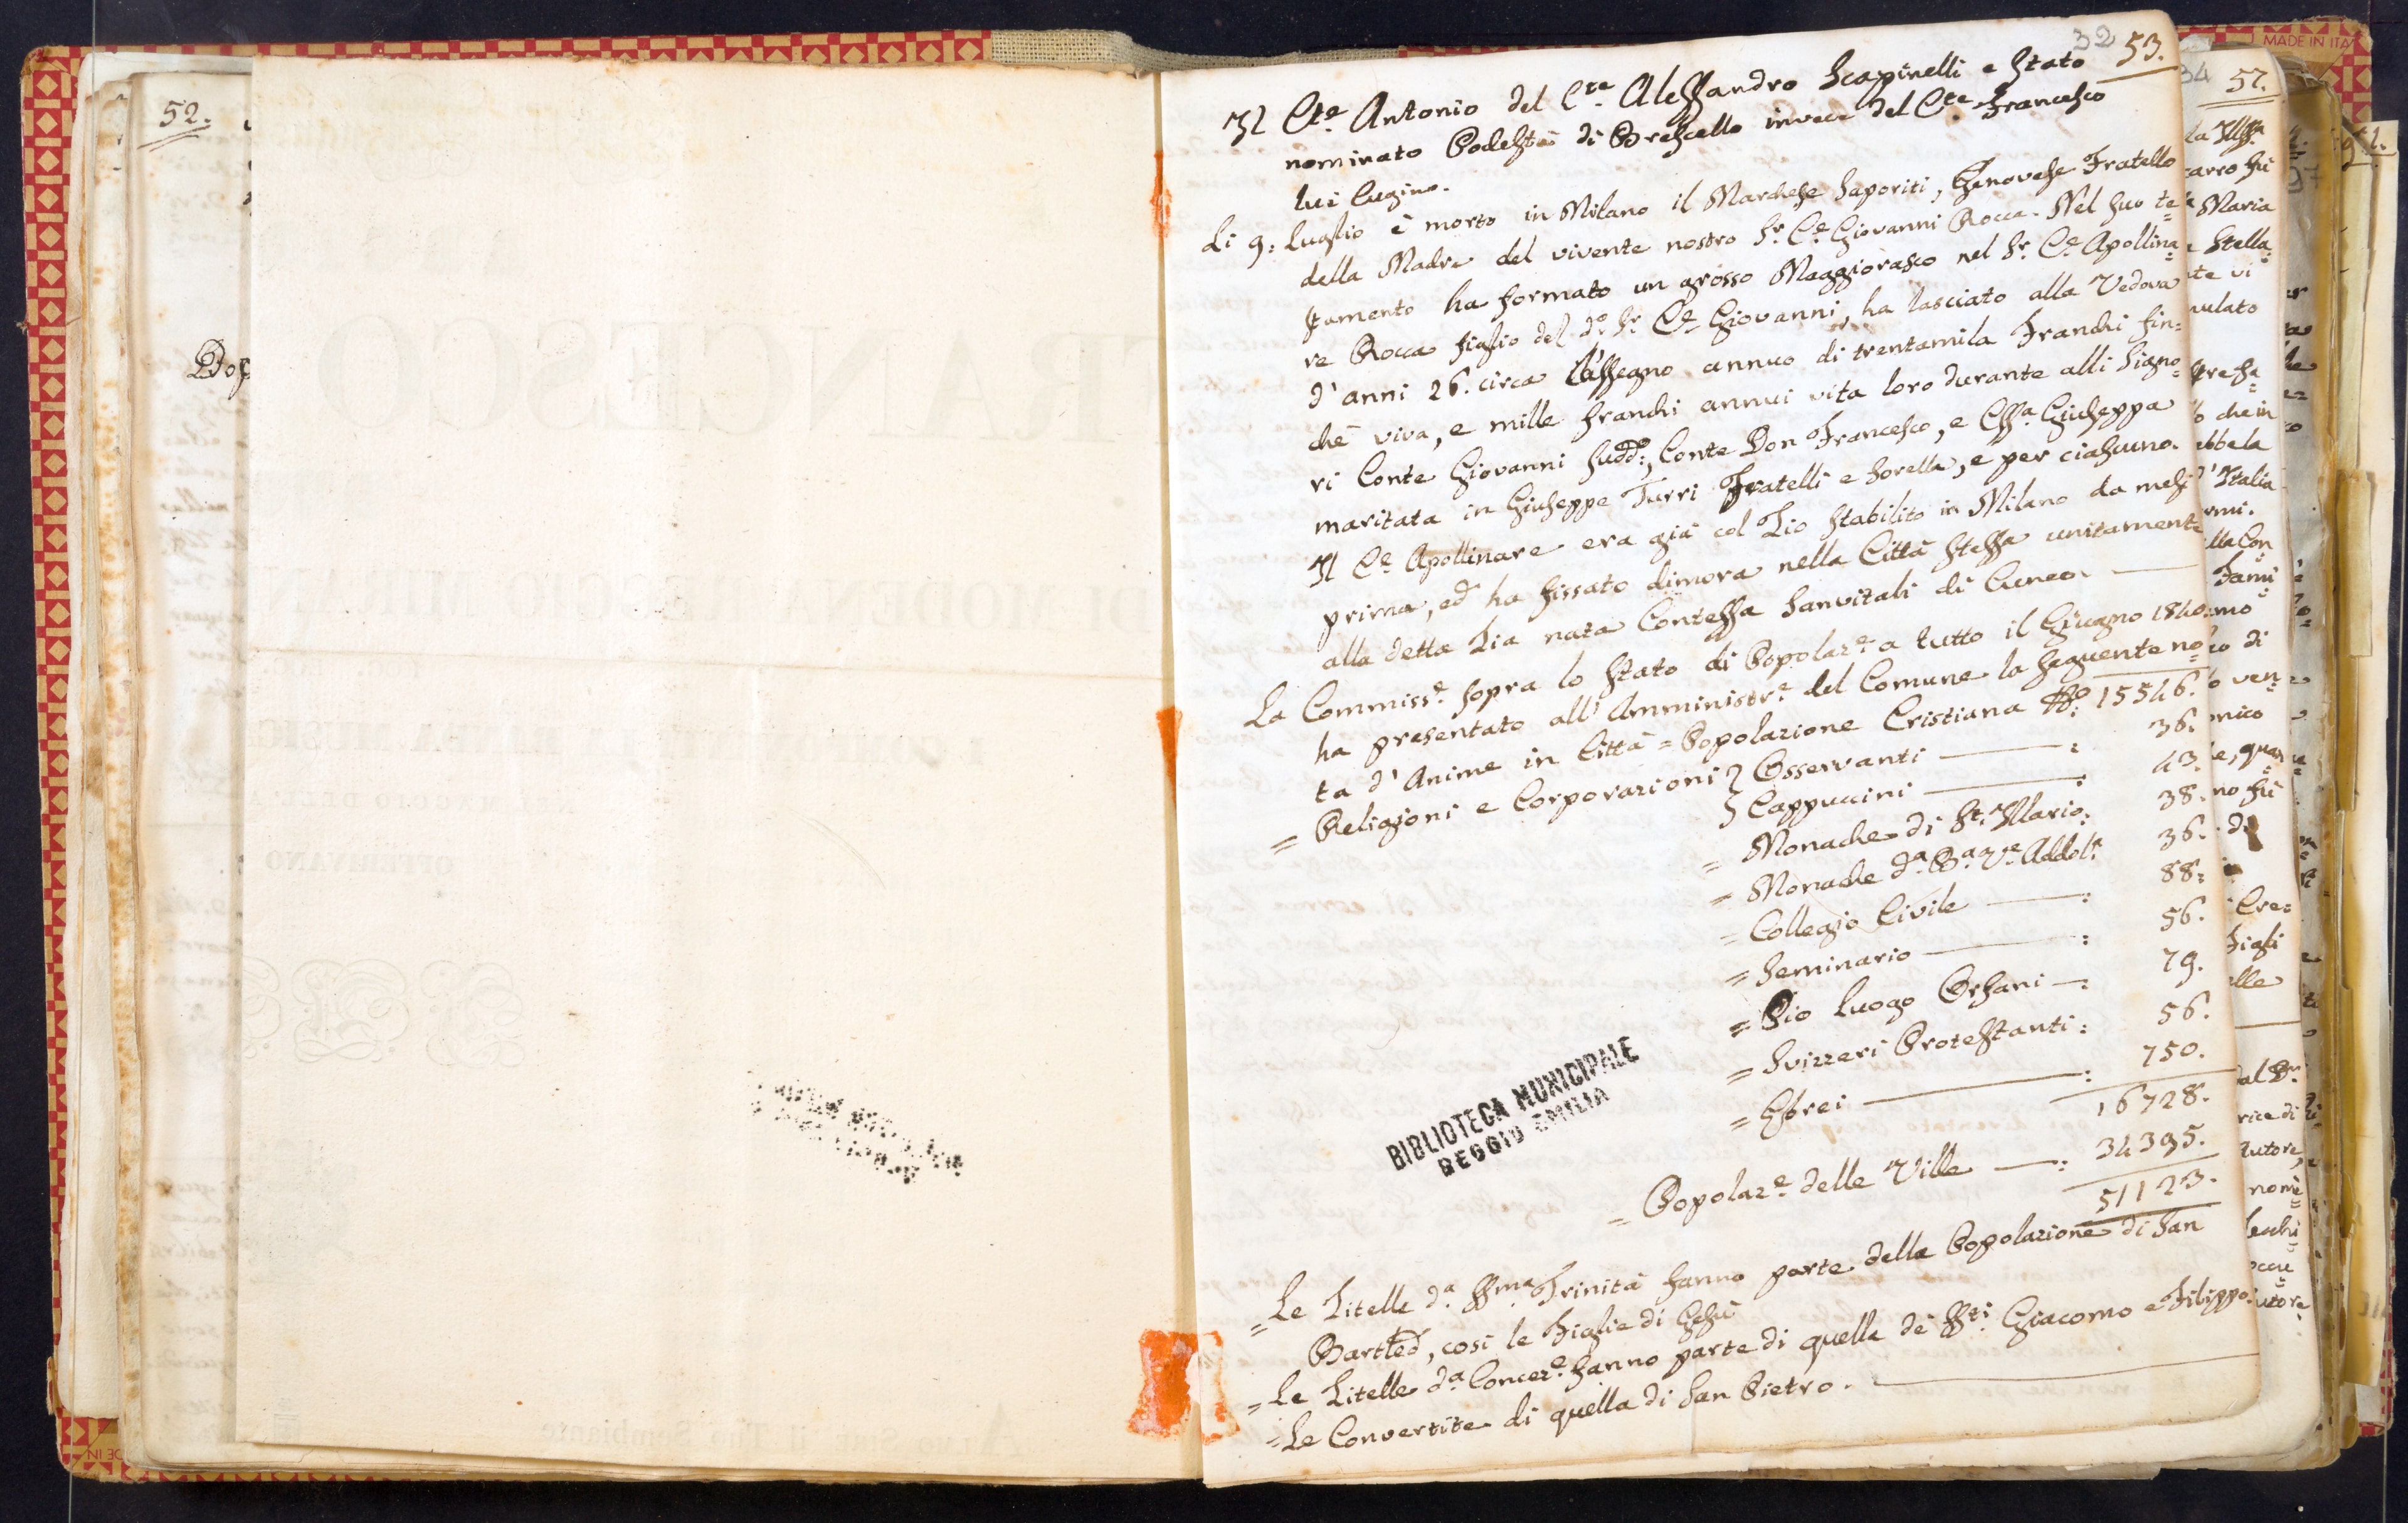 52.
32 53.
Il Cte Antonio del Cte Alessandro Scapinelli e stato
nominato Podestà di Brescello invece del Cte Francesco
lui Cugino.
Li 9: Luglio è morto in Milano il Marchese Saporiti, Genovese Fratello
della Madre del vivente nostro Sr. Ce. Giovanni Rocca. Nel suo te=
stamento ha formato un grosso Maggiorasco nel Sr. Ce. Apollina=
re Rocca figlio del do. Sr. Ce. Giovanni, ha lasciato alla Vedova
d'anni 26. circa l'assegno annuo di trentamila Franchi fin:
chè viva, e mille franchi annui vita loro durante alli Signo=
ri Conte Giovanni sudd:, Conte Don Francesco, e Cssa. Giuseppa
maritata in Giuseppe Turri Fratelli e Sorella, e per ciascuno.
Il Ce. Apollinare era già col Zio stabilito in Milano da mesi
prima, ed ha fissato dimora nella Città stessa unitamente
alla detta Zia nata Contessa Sanvitali di Cuneo.
La Commisse. sopra lo stato di Popolaze. a tutto il Giugno 1840.
ha presentato all' Amministre. del Comune la seguente no=
ta d'Anime in Città = Popolazione Cristiana No. 15546.
= Religioni e Corporazioni } Osservanti : 36.
} Cappuccini : 43.
= Monache di St. Illario: 38.
= Monache da. Ba. Ve. Addola. 36.
= Collegio Civile : 88:
= Seminario : 56.
= Pio Luogo Orfani : 79.
= Svizzeri Protestanti : 56.
= Ebrei : 750.
16728.
= Popolaze. delle Ville : 34395.
51123.
= Le Zitelle da. SSma. Trinità fanno parte della Popolazione di San
Bartted, così le Figlie di Gesù
= Le Zitelle da. Conceze. fanno parte di quella de' SSti. Giacomo e Filippo.
= Le Convertite di quella di San Pietro.
BIBLIOTECA MUNICIPALE
REGGIO EMILIA
34 57.
carro fu
Maria
Stella
te vi
mulato
che in
ebbe la
d'Italia
lla Con
Fami
di
ven=
onico
quan
no fu
di
Cre=
Figli
elle
rice di
Autore,
nomi
utore
MADE IN ITA